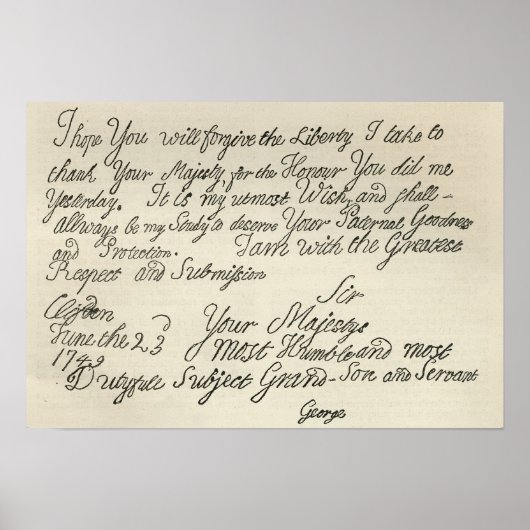 I hope You will forgive the Liberty I take to
thank Your Majesty, for the Honour You did me
Yesterday. It is my utmost Wish, and shall-
allways be my Study to deserve Your Paternal Goodness
and Protection. I am with the Greatest
Respect and Submission
Sir
Clifden
June the 23
1749
Your Majestys
most Humble and most
Dutyfull Subject Grand-Son and Servant
George